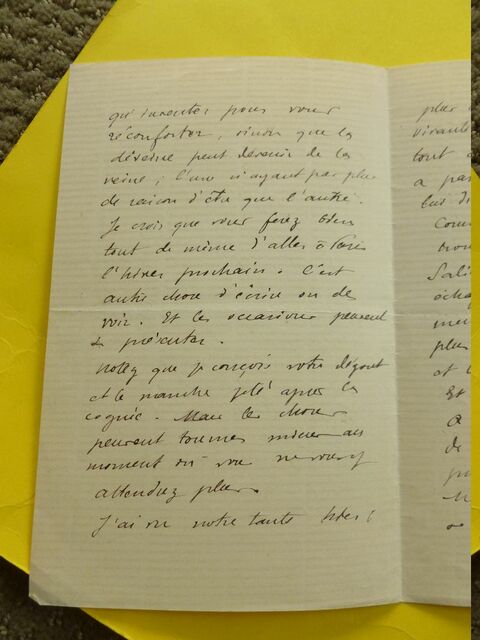 qu'inventer pour vous
réconforter, sinon que la
déveine peut devenir de la
veine ; l'une n'ayant pas plus
de raison d'être que l'autre.
Je crois que vous ferez bien
tout de même d'aller à Paris
l'hiver prochain. C'est
autre chose d'écrire ou de
voir. Et les occasions peuvent
se présenter.
Notez que je conçois votre dégoût
et le manche jeté après la
cognée. Mais les choses
peuvent tourner mieux au
moment où vous ne vous y
attendrez plus.
J'ai vu notre tante
plus
vivante
tout
a pas
lui di
Com
trou
Sali
écha
me
plus
et
Et
a
de